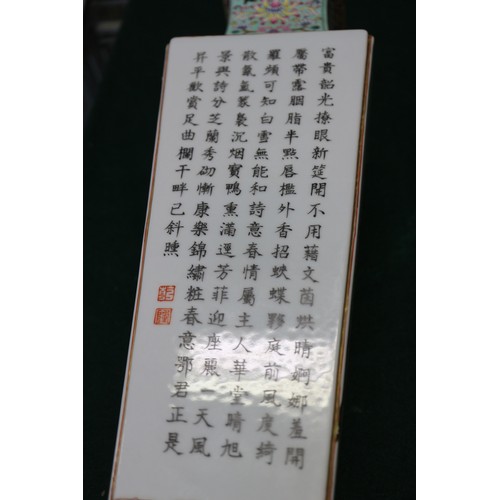 富貴韶光撩眼新筵開不用藉文茵烘晴婀娜羞開
靨帶露胭脂半點唇檻外香招蛺蝶夥庭前風度綺
羅頻可知白雪無能和詩意春情屬主人華堂晴旭
散氤氳裊裊沉烟寶鴨熏滿逕芳菲迎座照一天風
景與詩分芝蘭秀砌慚康樂錦繡粧春意鄂君正是
昇平歡賞足曲欄干畔已斜曛